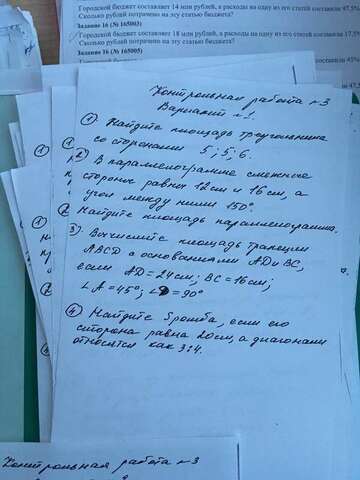 Городской бюджет составляет 14 млн рублей, а расходы на одну из его статей составили 47,5%
Сколько рублей потрачено на эту статью бюджета?
Задание 16 (№ 165003)
Городской бюджет составляет 18 млн рублей, а расходы на одну из его статей составили 17,5%
Сколько рублей потрачено на эту статью бюджета?
Задание 16 (№ 165005)
Контрольная работа №3
Вариант №1.
① Найдите площадь треугольника
со сторонами 5; 5; 6.
2) В параллелограмме смежные
стороны равны 12 см и 16 см, а
угол между ними 150°
Найдите площадь параллелограмма.
3). Вычислите площадь трапеции
ABCD с основаниями AD и BC,
если AD = 24 см; BC = 16 см;
∠A = 45°; ∠D = 90°
④ Найдите S ромба, если его
сторона равна 20 см, а диагонали
относятся как 3:4.
Контрольная работа №3